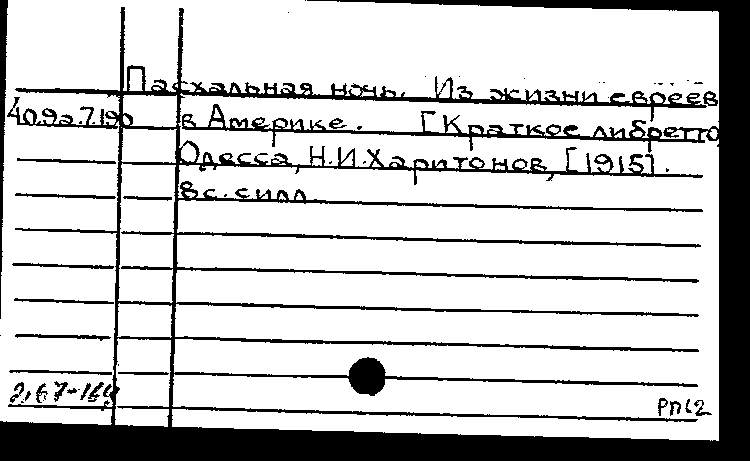 Пасхальная ночь. Из жизни евреев
40.9а.7.190 в Америке. [Краткое либретто
Одесса, Н.И.Харитонов, [1915].
8с. с илл.
2,67-164
РПб2